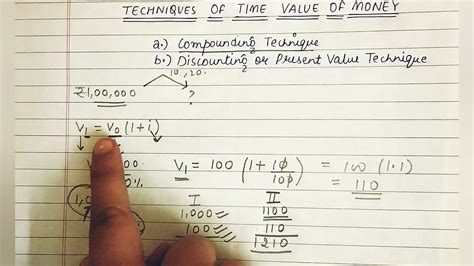 TECHNIQUES OF TIME VALUE OF MONEY
a.) Compounding Technique
b.) Discounting or Present Value Technique
10, 20.
₹1,00,000 ?
V₁ = V₀ (1+i)
V₁ = 100 (1 + 10/100) = 100 (1.1)
= 110
I II
1,000 1100
100 110
1210